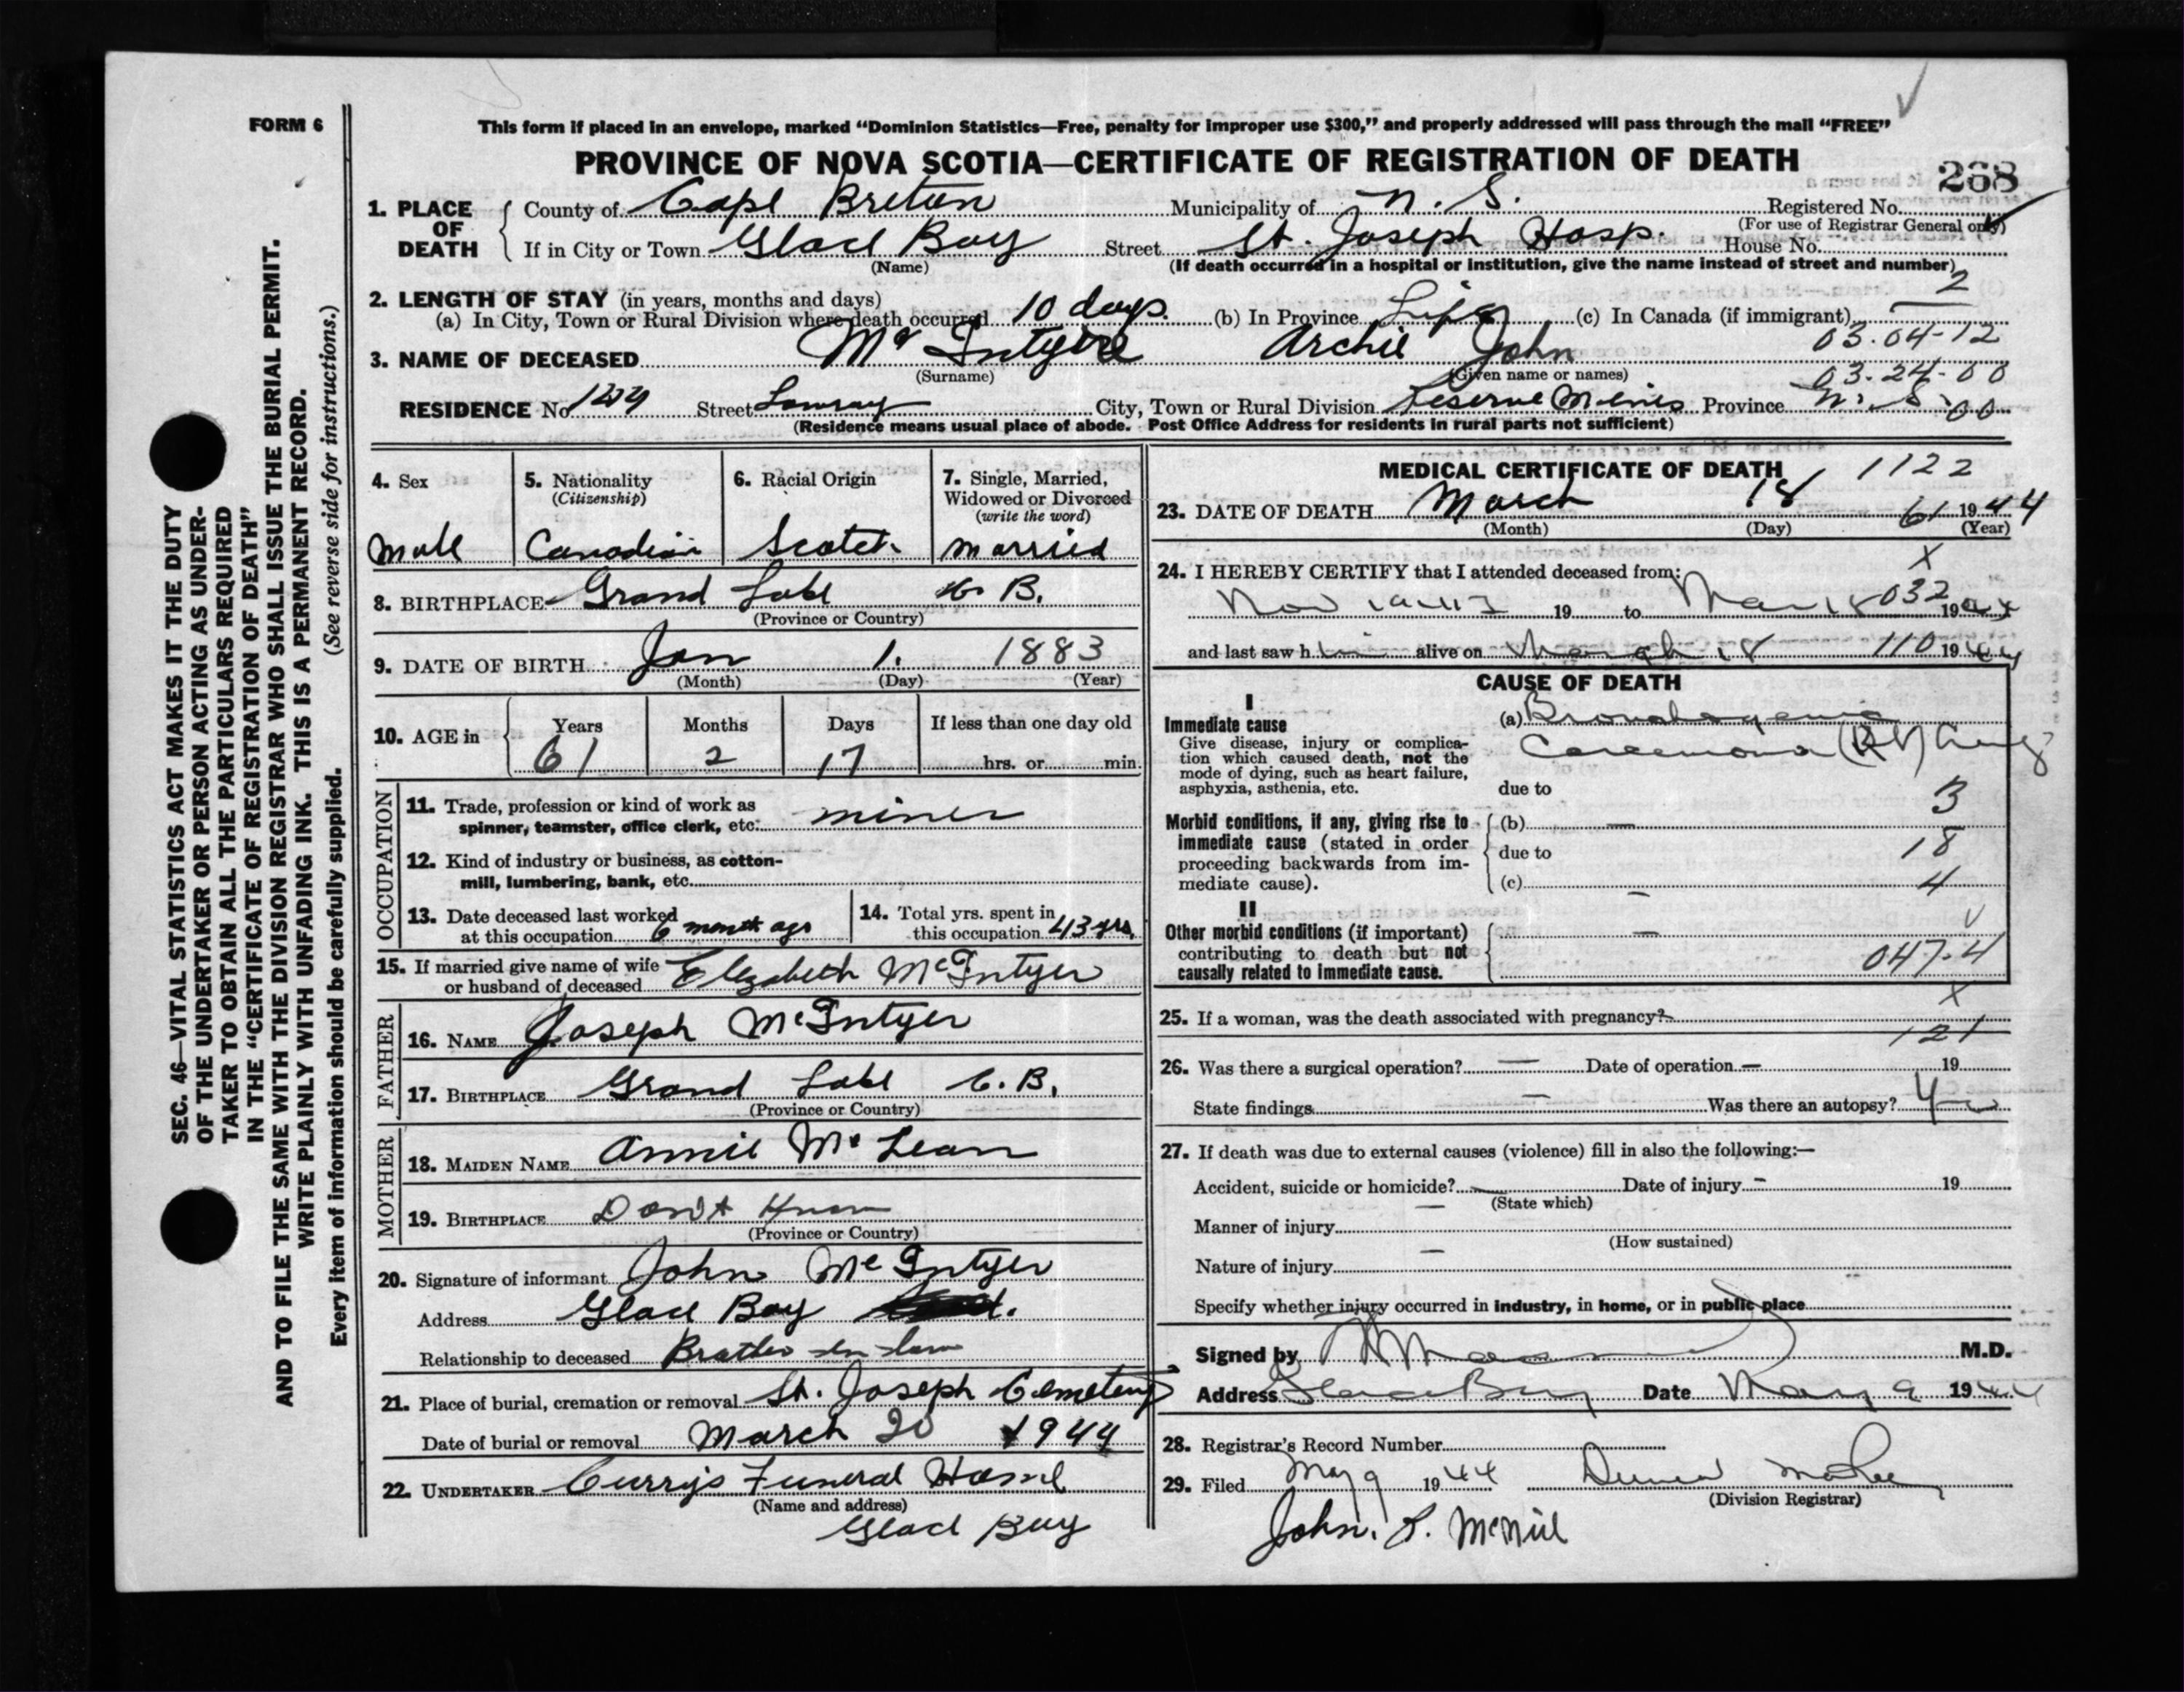 FORM 6
This form if placed in an envelope, marked “Dominion Statistics—Free, penalty for improper use $300,” and properly addressed will pass through the mail “FREE”
PROVINCE OF NOVA SCOTIA—CERTIFICATE OF REGISTRATION OF DEATH
268
1. PLACE OF DEATH County of Cape Breton Municipality of N. S. Registered No.
(For use of Registrar General only)
If in City or Town Glace Bay Street St. Joseph Hosp. House No.
(Name) (If death occurred in a hospital or institution, give the name instead of street and number)
2. LENGTH OF STAY (in years, months and days) 2
(a) In City, Town or Rural Division where death occurred 10 days. (b) In Province Life (c) In Canada (if immigrant)
03.04-12
3. NAME OF DECEASED McIntyre Archie John
(Surname) (Given name or names) 03-24-00
RESIDENCE No. Street City, Town or Rural Division Reserve Mines Province N. S. 00
(Residence means usual place of abode. Post Office Address for residents in rural parts not sufficient)
4. Sex Male
5. Nationality (Citizenship) Canadian
6. Racial Origin Scotch
7. Single, Married, Widowed or Divorced (write the word) Married
8. BIRTHPLACE Grand Lake C. B.
(Province or Country)
9. DATE OF BIRTH Jan 1. 1883
(Month) (Day) (Year)
10. AGE in Years Months Days If less than one day old
61 2 17 hrs. or min.
OCCUPATION
11. Trade, profession or kind of work as
spinner, teamster, office clerk, etc. miner
12. Kind of industry or business, as cotton-
mill, lumbering, bank, etc.
13. Date deceased last worked
at this occupation 6 month ago
14. Total yrs. spent in
this occupation 43 yrs.
15. If married give name of wife
or husband of deceased Elizabeth McIntyer
FATHER
16. NAME Joseph McIntyer
17. BIRTHPLACE Grand Lake C. B.
(Province or Country)
MOTHER
18. MAIDEN NAME Annie McLean
19. BIRTHPLACE Don't Know
(Province or Country)
20. Signature of informant John McIntyer
Address Glace Bay
Relationship to deceased Brother in law
21. Place of burial, cremation or removal St. Joseph Cemetery
Date of burial or removal March 20 1944
22. UNDERTAKER Curry's Funeral Home
(Name and address)
Glace Bay
MEDICAL CERTIFICATE OF DEATH 1122
23. DATE OF DEATH March 18 61 1944
(Month) (Day) (Year)
X
24. I HEREBY CERTIFY that I attended deceased from:
Nov 19 to Mar 18 032 1944
and last saw h im alive on March 18 110 1944
CAUSE OF DEATH
I
Immediate cause
Give disease, injury or complica-
tion which caused death, not the
mode of dying, such as heart failure,
asphyxia, asthenia, etc.
(a) Bronchogenic
Carcinoma (Rt) Lung
due to 3
Morbid conditions, if any, giving rise to
immediate cause (stated in order
proceeding backwards from im-
mediate cause).
(b) —
due to 18
(c) — 4
II
Other morbid conditions (if important)
contributing to death but not
causally related to immediate cause.
—
047-4
X
25. If a woman, was the death associated with pregnancy?
121
26. Was there a surgical operation? — Date of operation — 19
State findings — Was there an autopsy?
27. If death was due to external causes (violence) fill in also the following:—
Accident, suicide or homicide? — Date of injury — 19
(State which)
Manner of injury —
(How sustained)
Nature of injury —
Specify whether injury occurred in industry, in home, or in public place
Signed by M.D.
Address Glace Bay Date May 9 1944
28. Registrar's Record Number
29. Filed May 9 1944
(Division Registrar)
John. L. McNeil
SEC. 46—VITAL STATISTICS ACT MAKES IT THE DUTY
OF THE UNDERTAKER OR PERSON ACTING AS UNDER-
TAKER TO OBTAIN ALL THE PARTICULARS REQUIRED
IN THE “CERTIFICATE OF REGISTRATION OF DEATH”
AND TO FILE THE SAME WITH THE DIVISION REGISTRAR WHO SHALL ISSUE THE BURIAL PERMIT.
WRITE PLAINLY WITH UNFADING INK. THIS IS A PERMANENT RECORD.
Every item of information should be carefully supplied. (See reverse side for instructions.)